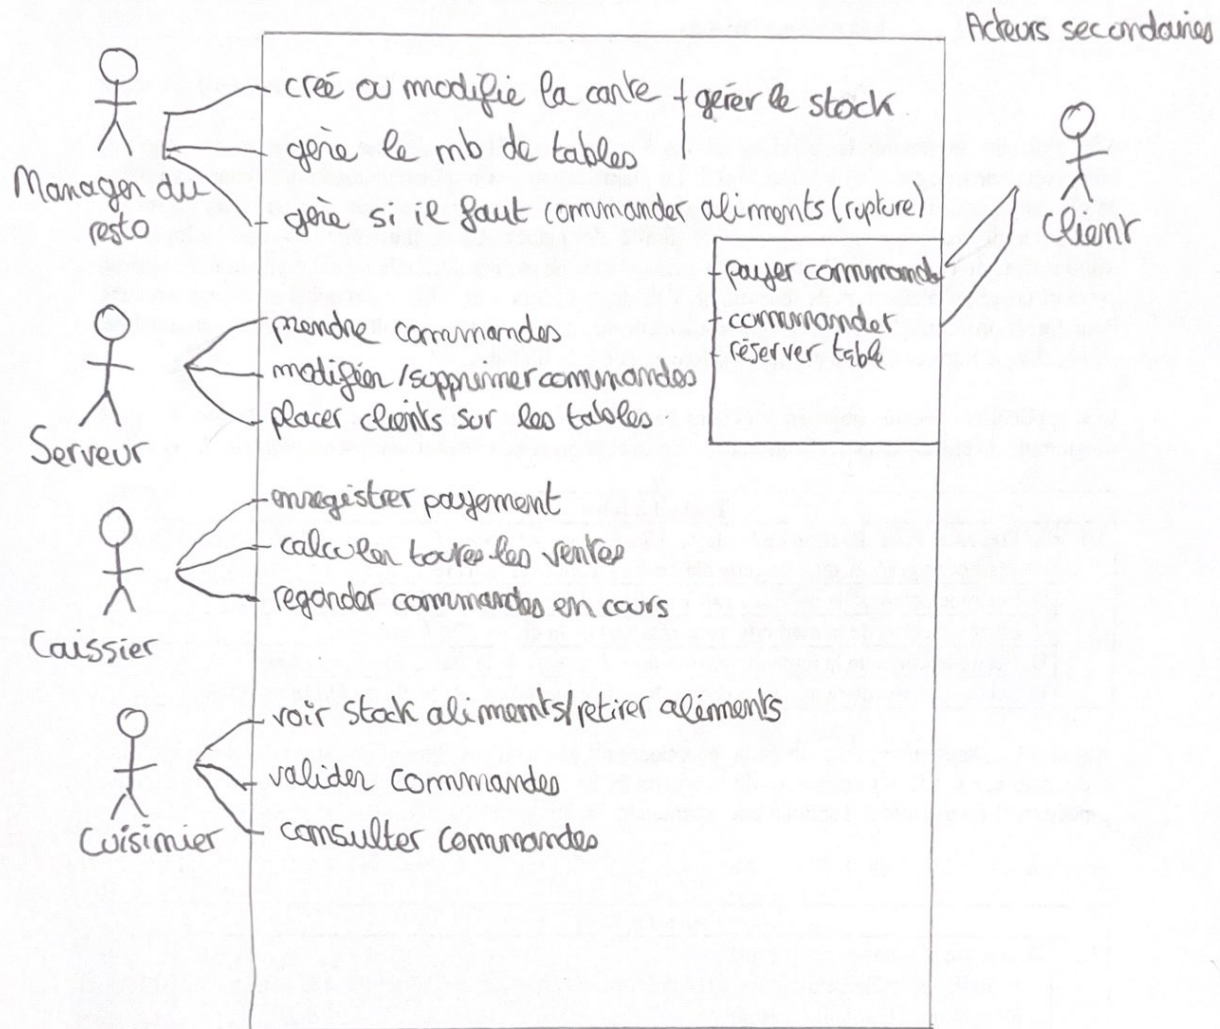 Acteurs secondaires
créé ou modifie la carte
gérer le stock
gère le nb de tables
Manager du
resto
gère si il faut commander aliments (rupture)
Client
payer commande
commander
réserver table
prendre commandes
modifier/supprimer commandes
placer clients sur les tables
Serveur
enregistrer payement
calculer toutes les ventes
regarder commandes en cours
Caissier
voir stock aliments/retirer aliments
valider commandes
consulter commandes
Cuisinier